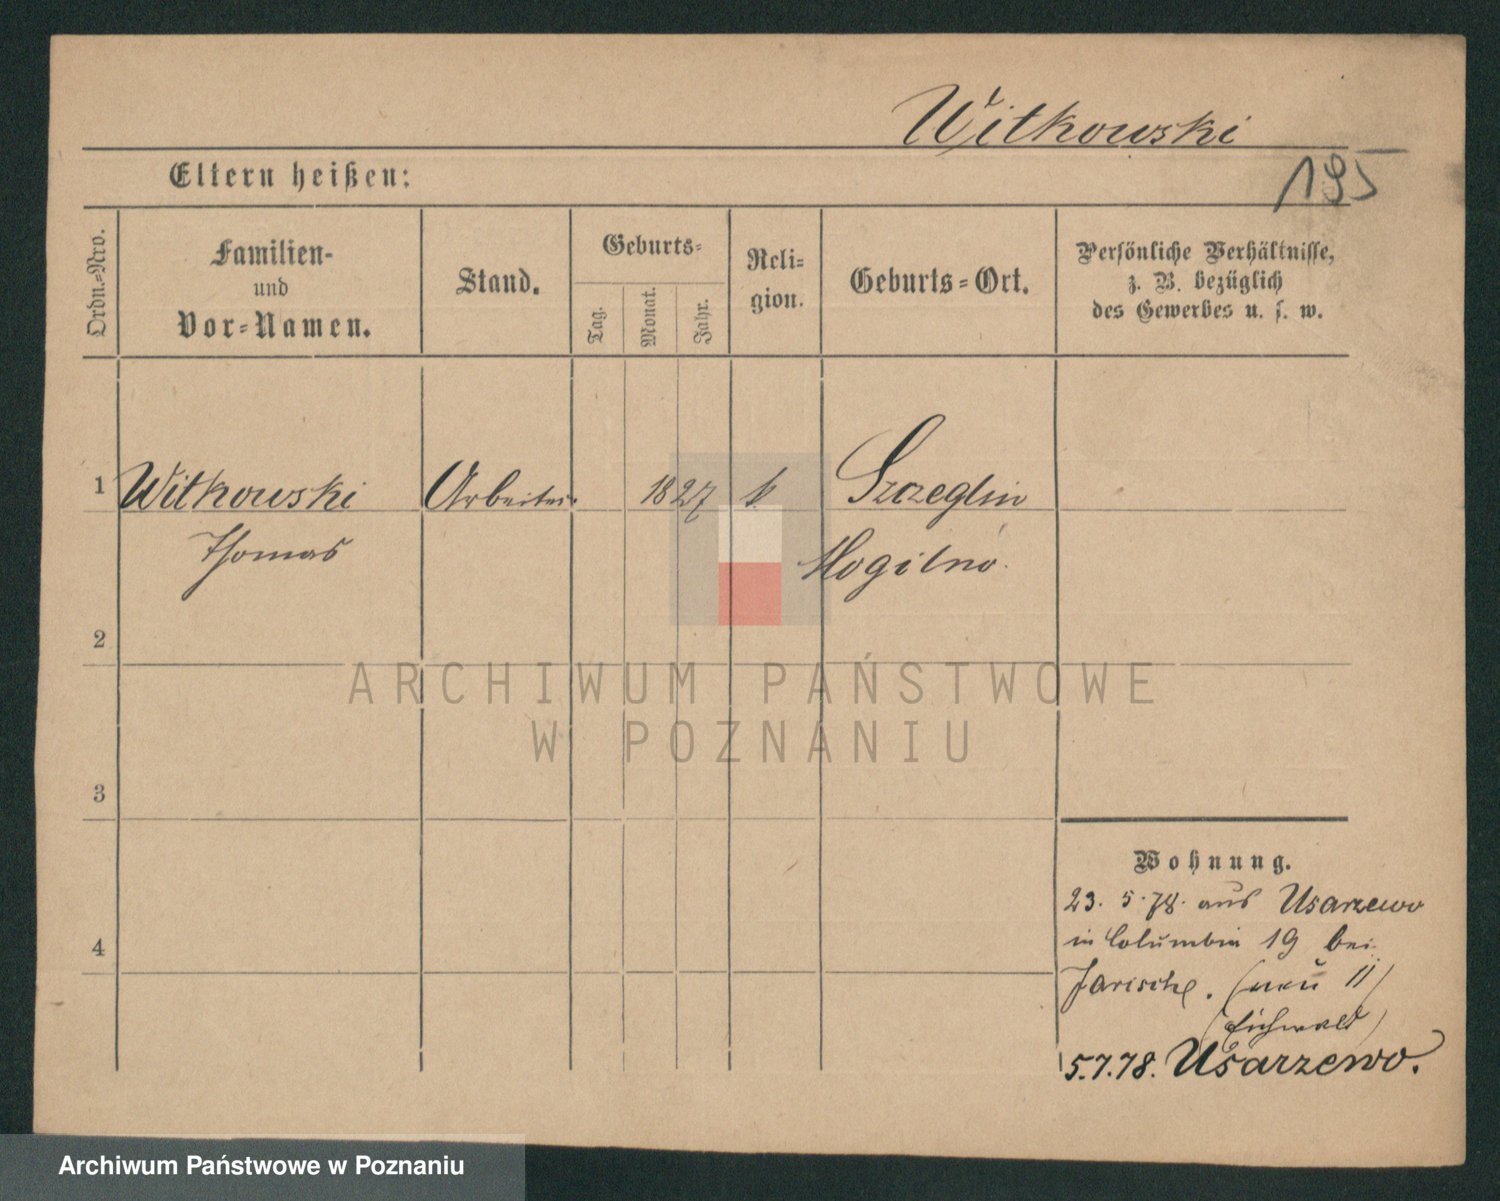 Witkowski
195
Eltern heißen:
Ordn.-Nro.
Familien-
und
Vor-Namen.
Stand.
Geburts-
Tag.
Monat.
Jahr.
Reli-
gion.
Geburts-Ort.
Persönliche Verhältnisse,
z. B. bezüglich
des Gewerbes u. s. w.
1 Witkowski Arbeiter 1827 k. Szczeglin
Thomas Mogilno.
2
3
4
Wohnung.
23. 5. 78. aus Usarzewo
in Columbia 19 bei
Jarische. (neu 11)
(Eichwald)
5.7.78. Usarzewo.
ARCHIWUM PAŃSTWOWE
W POZNANIU
Archiwum Państwowe w Poznaniu